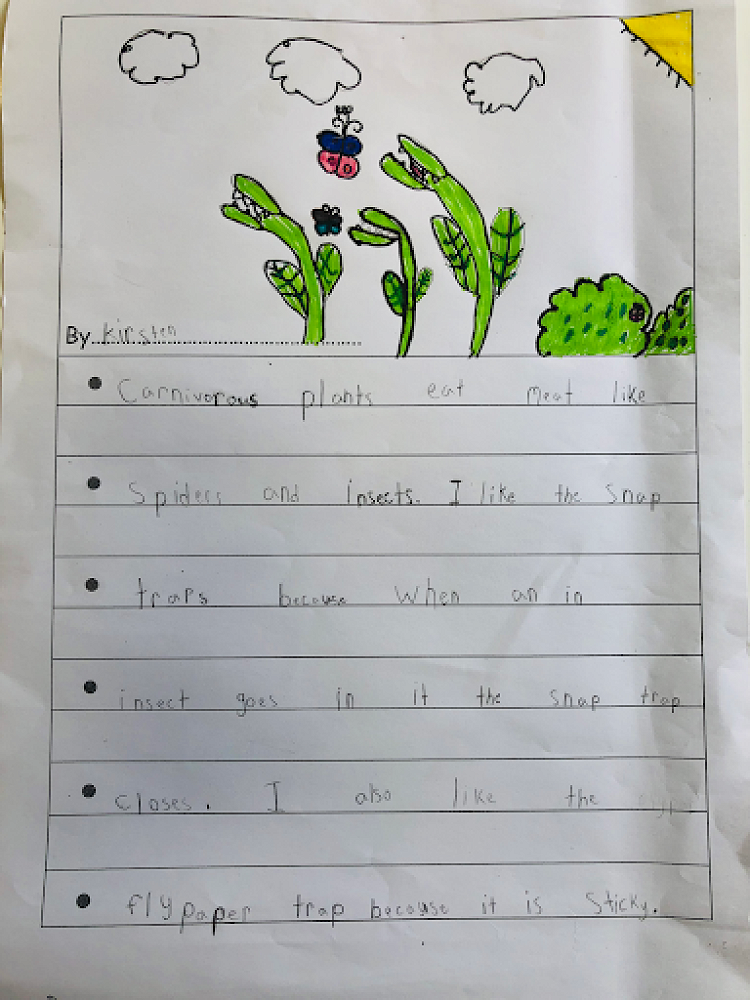 By Kirsten
Carnivorous plants eat meat like
Spiders and insects. I like the Snap
traps because when an in
insect goes in it the snap trap
closes. I also like the
fly paper trap because it is sticky.